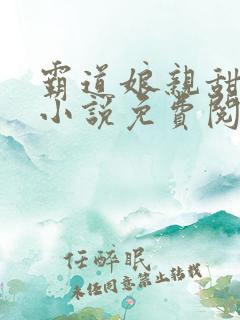 霸道娘親甜
小說免費閱
任醉眠
未任同意禁止轉載